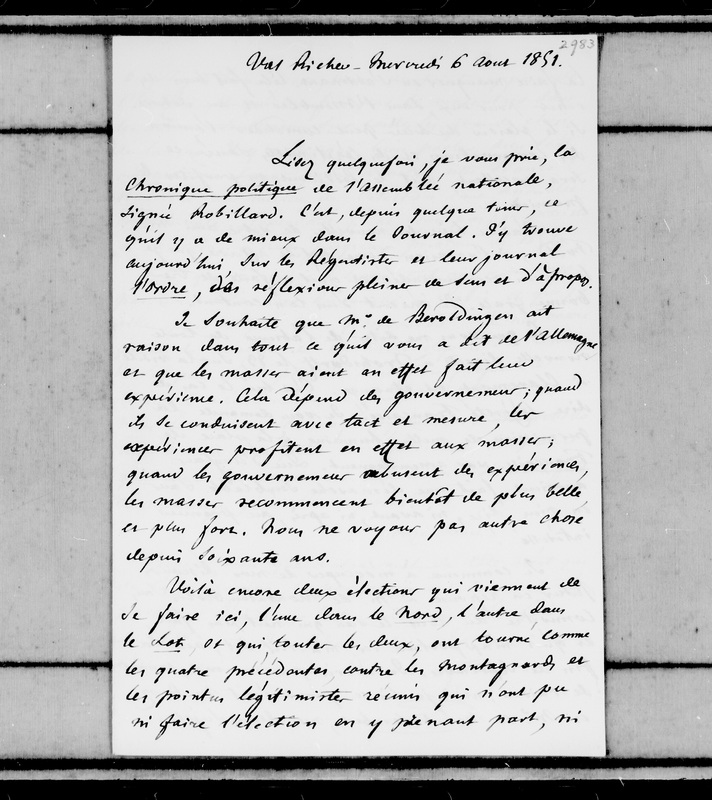 2983
Val Richer - Mercredi 6 Août 1851.
Lisez quelquefois, je vous prie, la
Chronique politique de l'assemblée nationale,
signée Robillard. C'est, depuis quelque tems, ce
qu'il y a de mieux dans le Journal. J'y trouve
aujourd'hui, sur les Régentistes et leur journal
l'Ordre, des réflexions pleines de sens et d'àpropos.
Je souhaite que Mr. de Beroldingen ait
raison dans tout ce qu'il vous a dit de l'Allemagne
et que les masses aient en effet fait leur
expérience. Cela dépend des gouvernemens; quand
ils se conduisent avec tact et mesure, les
expériences profitent en effet aux masses;
quand les gouvernemens abusent des expériences,
les masses recommencent bientôt de plus belle
et plus fort. Nous ne voyons pas autre chose
depuis soixante ans.
Voilà encore deux élections qui viennent de
se faire ici, l'une dans le Nord, l'autre dans
le Lot, et qui toutes les deux, ont tourné comme
les quatre précédentes, contre les Montagnards et
les pointus légitimistes réunis qui n'ont pu
ni faire l'élection en y prenant part, ni